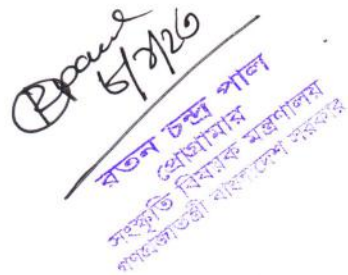 রতন চন্দ্র পাল
প্রোগ্রামার
সংস্কৃতি বিষয়ক মন্ত্রণালয়
গণপ্রজাতন্ত্রী বাংলাদেশ সরকার